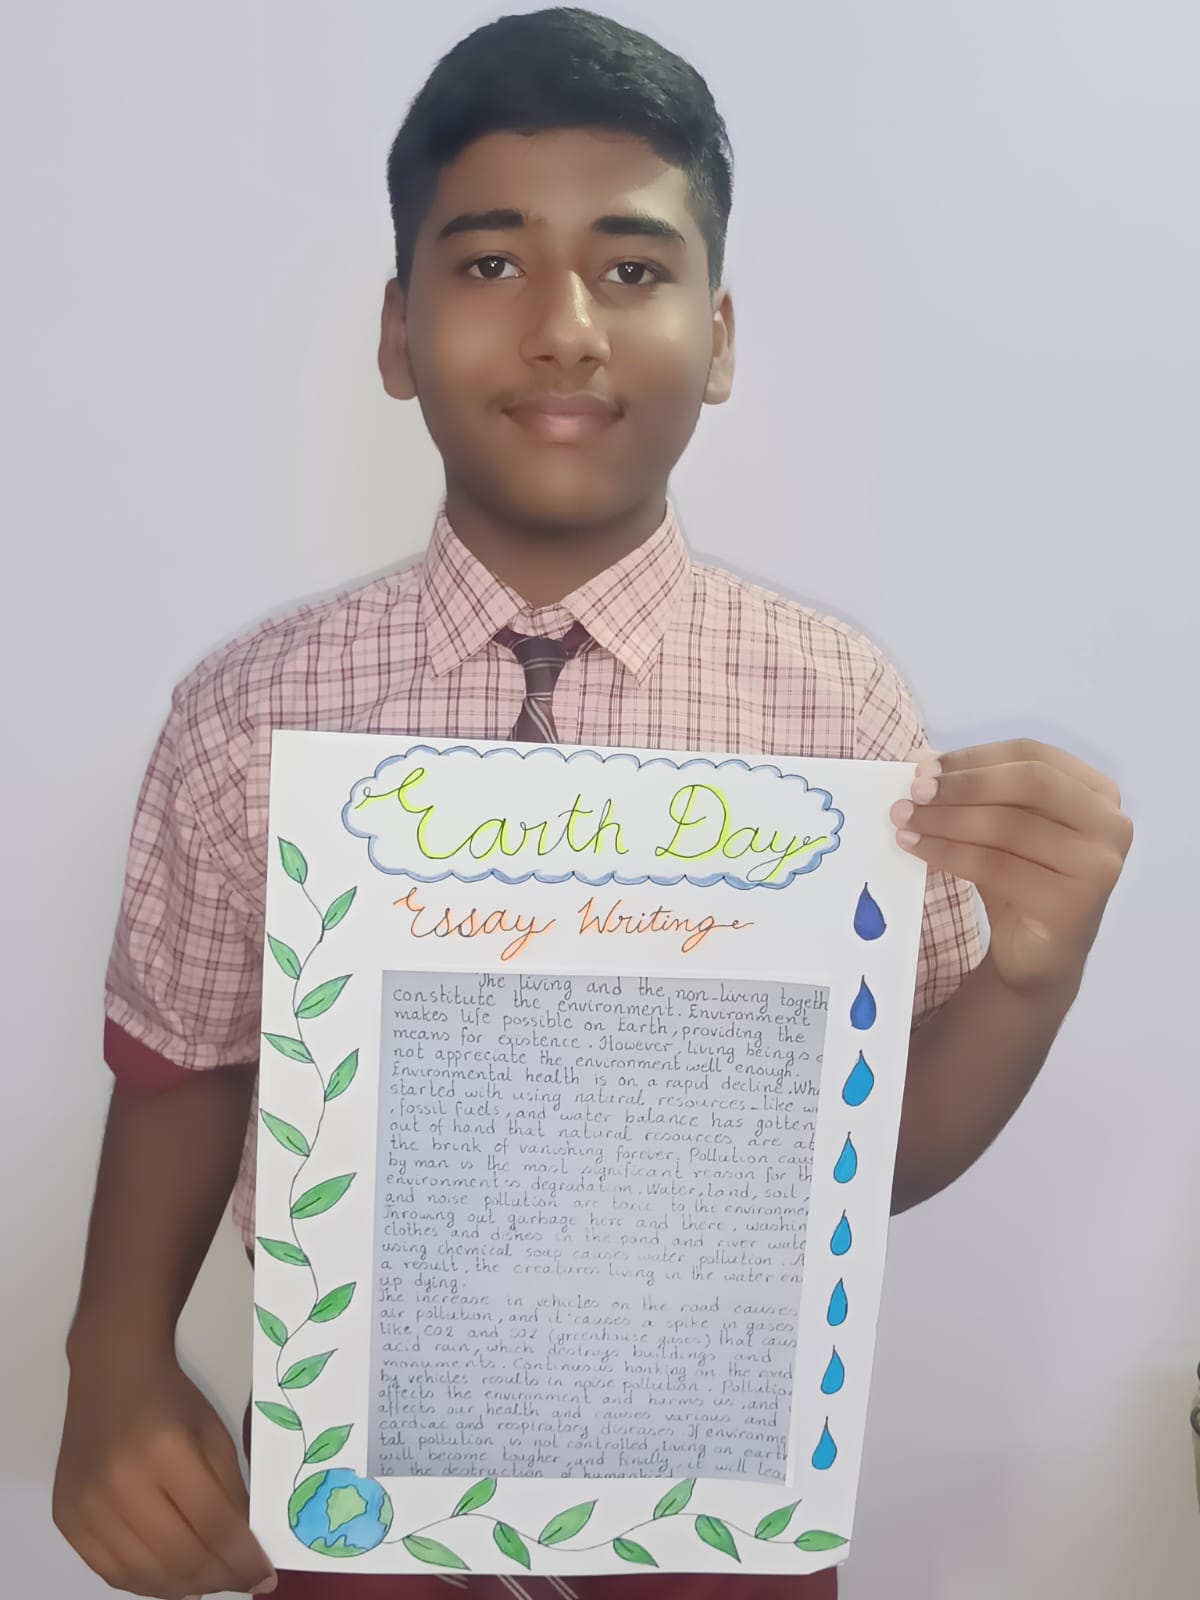 Earth Day
Essay Writing
The living and the non-living togeth
constitute the environment. Environment
makes life possible on Earth, providing the
means for existence. However, living beings
not appreciate the environment well enough.
Environmental health is on a rapid decline. Wh
started with using natural resources - like w
, fossil fuels, and water balance has gotten
out of hand that natural resources are at
the brink of vanishing forever. Pollution cau
by man is the most significant reason for th
environment's degradation. Water, land, soil,
and noise pollution are toxic to the environme
Throwing out garbage here and there, washin
clothes and dishes in the pond and river wate
using chemical soap causes water pollution. A
a result, the creatures living in the water en
up dying.
The increase in vehicles on the road causes
air pollution, and it causes a spike in gases
like CO2 and SO2 (greenhouse gases) that caus
acid rain, which destroys buildings and
monuments. Continuous honking on the road
by vehicles results in noise pollution. Pollutio
affects the environment and harms us, and
affects our health and causes various and
cardiac and respiratory diseases. If environme
tal pollution is not controlled, living on earth
will become tougher, and finally, it will lea
to the destruction of humankind